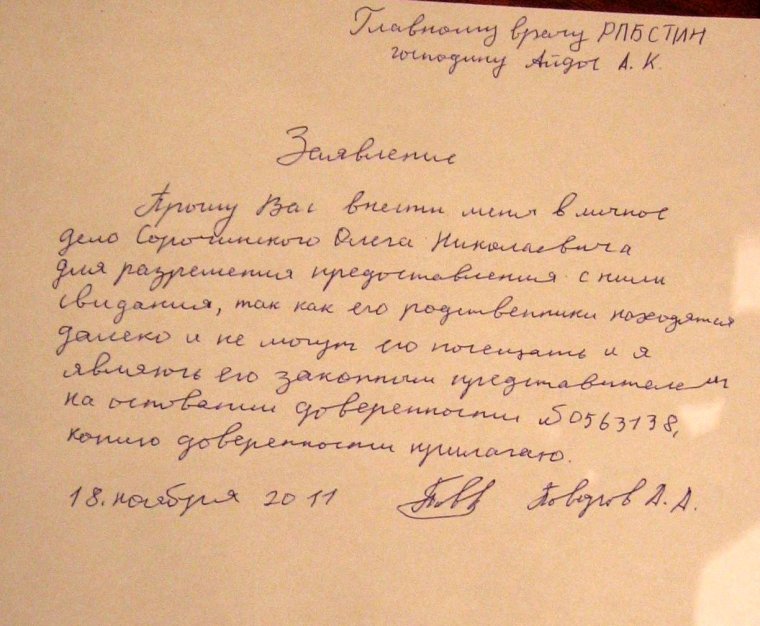 Главному врачу РПБСТИН
господину Айдос А. К.
Заявление
Прошу Вас внести меня в личное
дело Сорочинского Олега Николаевича
для разрешения предоставления с ним
свидания, так как его родственники находятся
далеко и не могут его посещать и я
являюсь его законным представителем
на основании доверенности №0563138,
копию доверенности прилагаю.
18. ноября 2011 А. А.